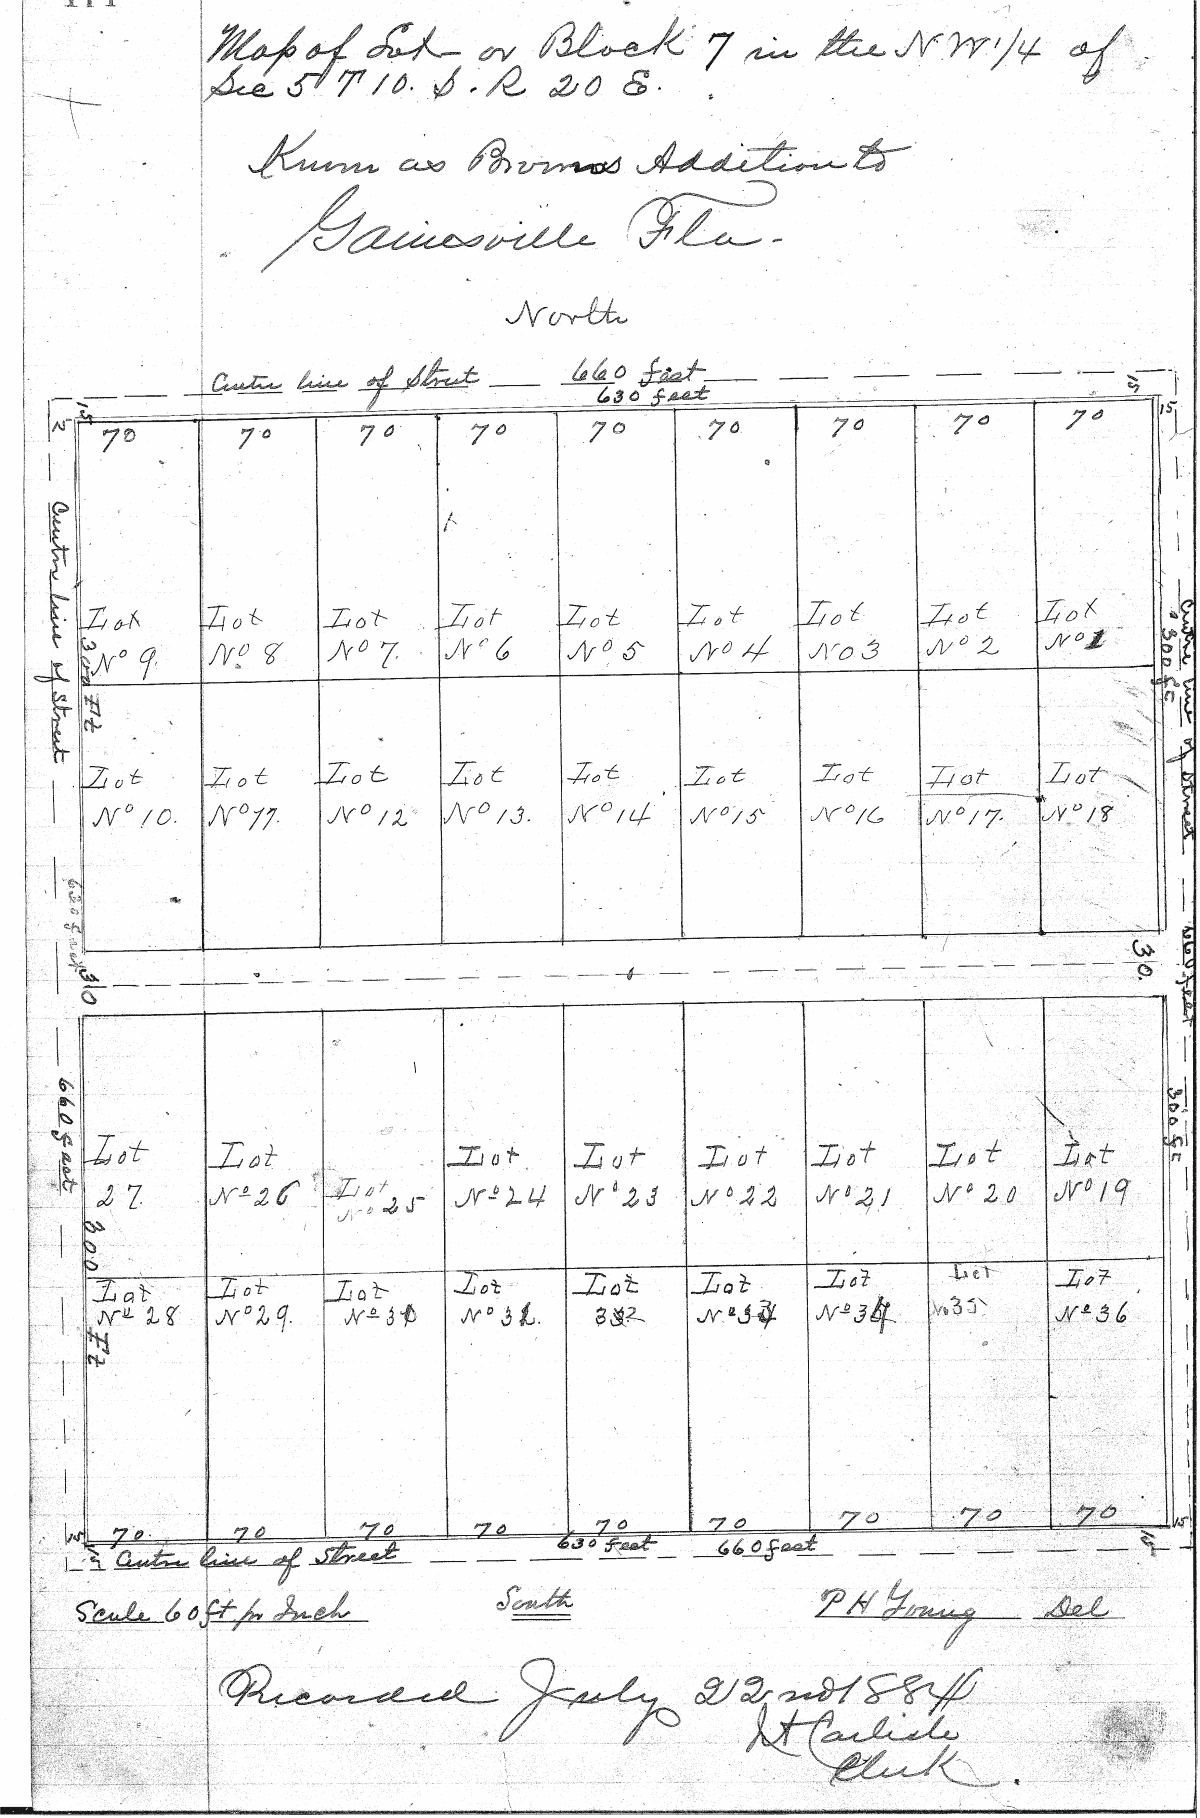 Map of Lot or Block 7 in the NW 1/4 of
Sec 5 T 10. S. R 20 E.
Known as Browns Addition to
Gainesville Fla.
North
Centre line of Street 660 feet
630 feet
15 15
15 15
70 70 70 70 70 70 70 70 70
Centre line of Street
Centre line of Street
Lot Lot Lot Lot Lot Lot Lot Lot Lot
No 9. No 8 No 7. No 6 No 5 No 4 No 3 No 2 No 1
300 Ft
300 ft
Lot Lot Lot Lot Lot Lot Lot Lot Lot
No 10. No 11. No 12 No 13. No 14 No 15 No 16 No 17. No 18
630 feet
660 feet
30 30.
660 feet
300 ft
Lot Lot Lot Lot Lot Lot Lot Lot Lot
27. No 26 No 25 No 24 No 23 No 22 No 21 No 20 No 19
300 Ft
Lot Lot Lot Lot Lot Lot Lot Lot Lot
No 28 No 29. No 30 No 31. 32 No 33 No 34 No 35 No 36
70 70 70 70 70 70 70 70 70
15 15
15 15
630 feet
Centre line of Street 660 feet
Scale 60 ft pr Inch South P H Young Del
Recorded July 22nd 1884
Carlisle
Clerk.